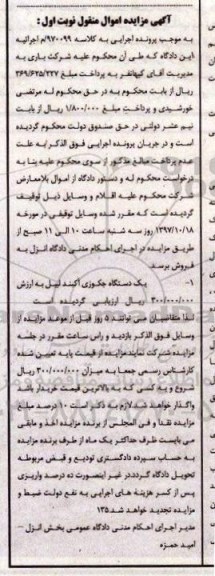 آگهی مزایده اموال منقول نوبت اول :
به موجب پرونده اجرایی به کلاسه ۹۷۰۰۹۹/م اجرائیه
این دادگاه که طی آن محکوم علیه شرکت یاری به
مدیریت آقای کیهانفر به پرداخت مبلغ ۲۶۹/۶۲۵/۲۲۷
ریال از بابت محکوم به در حق محکوم له مرتضی
خورشیدی و پرداخت مبلغ ۱/۸۰۰/۰۰۰ ریال از بابت
نیم عشر دولتی در حق صندوق دولت محکوم گردیده
است و در جریان پرونده اجرایی فوق الذکر به علت
عدم پرداخت مبالغ مذکور از سوی محکوم علیه بنا به
درخواست محکوم له و دستور دادگاه از اموال بلامعارض
شرکت محکوم علیه اقلام و وسایل ذیل توقیف
گردیده است که مقرر شده وسایل توقیفی در مورخه
۱۳۹۷/۱۰/۱۸ روز سه شنبه ساعت ۱۰ الی ۱۱ صبح از
طریق مزایده در اجرای احکام مدنی دادگاه انزل به
فروش برسد
۱- یک دستگاه جکوزی آکبند لیبل به ارزش
۳۰۰/۰۰۰/۰۰۰ ریال ارزیابی گردیده است
لذا متقاضیان می توانند ۵ روز قبل از موعد مزایده از
وسایل فوق الذکر بازدید و راس ساعت مقرر در جلسه
مزایده شرکت نمایند مزایده از قیمت پایه تعیین شده
کارشناس رسمی جمعا به میزان ۳۰۰/۰۰۰/۰۰۰ ریال
شروع و به کسی که به بالاترین قیمت خریدار باشد
واگذار خواهد شد لازم به ذکر است ۱۰ درصد مبلغ
مزایده نقدا و فی المجلس از برنده مزایده اخذ و مابقی
می بایست ظرف حداکثر یک ماه از طرف برنده مزایده
به حساب سپرده دادگستری تودیع و قبض مربوطه
تحویل دادگاه گردد در غیر اینصورت ده درصد واریزی
پس از کسر هزینه های اجرایی به نفع دولت ضبط و
مزایده تجدید خواهد شد ۱۳۵
مدیر اجرای احکام مدنی دادگاه عمومی بخش انزل –
امید حمزه